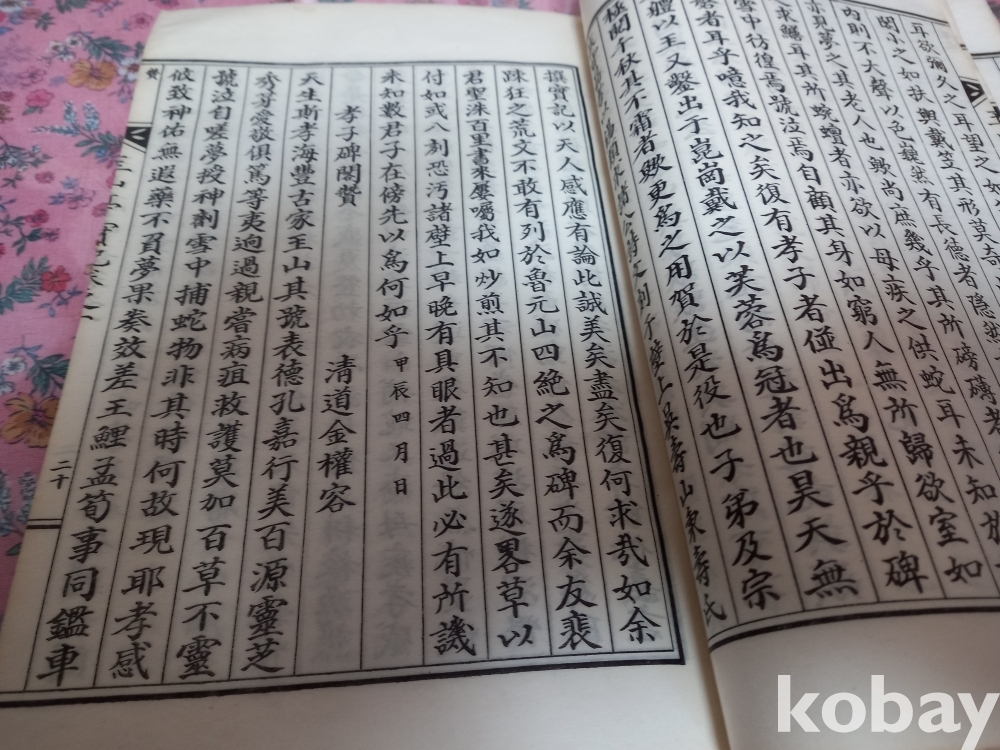 耳欲彌久之耳望之如
閣小之如扶輿戴笠其形莫奇
內則不大聲以色山然有長德者隱然
亦見夢之其老人也歟尚庶幾乎其所磅礴者
求鱔耳其所蛇蟺者亦欲以母疾之供蛇耳未知於
雪中彷徨焉號泣焉自顧其身如窮人無所歸欲室如
磨者耳乎噫我知之矣復有孝子者僅出爲親乎於碑
體以王又鑿出于崑崗戴之以芙蓉爲冠者也昊天無
極閱千秋其不霜者歟更爲之用賀於是役也子弟及宗
撰實記以天人感應有論此誠美矣盡矣復何求哉如余
踈狂之荒文不敢有列於魯元山四絶之爲碑而余友裵
君聖洙百里書來屢囑我如炒煎其不知也甚矣遂畧草以
付如或八刻恐汚諸壁上早晩有具眼者過此必有所譏
未知數君子在傍先以爲何如乎 甲辰四月日
孝子碑閣贊
清道金權容
天生斯孝海豊古家王山其號表德孔嘉行美百源靈芝
秀芽愛敬俱篤等夷逈過親嘗病疽救護莫加百草不靈
號泣匂嗟夢授神劑雪中捕蛇物非其時何故現耶孝感
攸致神佑無遐藥不負夢果奏效差王鯉孟筍事同鑑車
二十
kobay